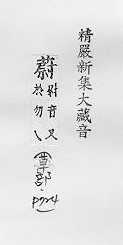 精嚴新集大藏音
蔚
尉音又
於勿乀
(草部.
P724)